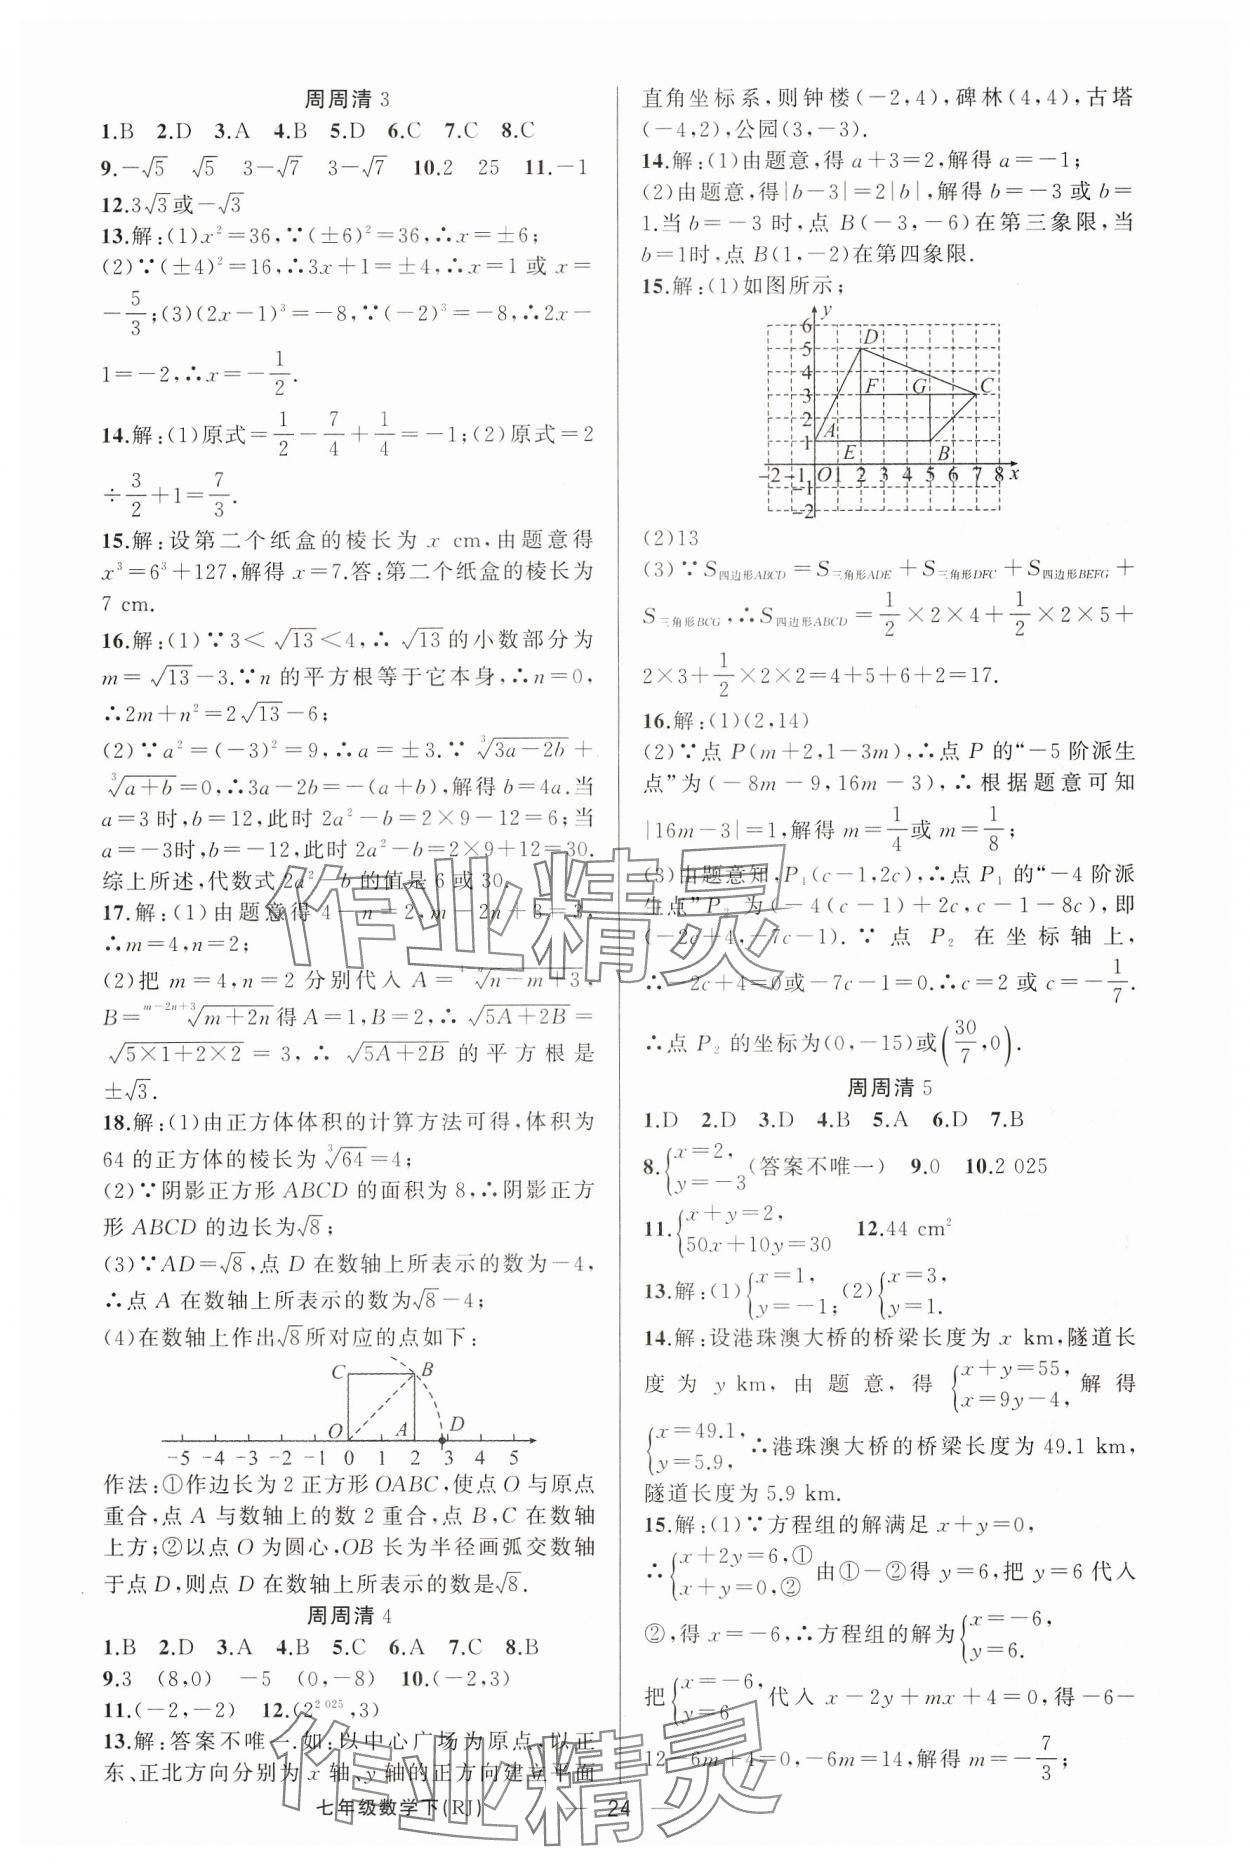 周周清 3
1.B 2.D 3.A 4.B 5.D 6.C 7.C 8.C
9.-√5 √5 3-√7 3-√7 10.2 25 11.-1
12.3√3或-√3
13.解:(1)x²=36,∵(±6)²=36,∴x=±6;
(2)∵(±4)²=16,∴3x+1=±4,∴x=1或x=
-5/3;(3)(2x-1)³=-8,∵(-2)³=-8,∴2x-
1=-2,∴x=-1/2.
14.解:(1)原式=1/2-7/4+1/4=-1;(2)原式=2
÷3/2+1=7/3.
15.解:设第二个纸盒的棱长为 x cm,由题意得
x³=6³+127,解得 x=7.答:第二个纸盒的棱长为
7 cm.
16.解:(1)∵3<√13<4,∴√13的小数部分为
m=√13-3.∵n的平方根等于它本身,∴n=0,
∴2m+n²=2√13-6;
(2)∵a²=(-3)²=9,∴a=±3.∵∛(3a-2b)+
∛(a+b)=0,∴3a-2b=-(a+b),解得b=4a.当
a=3时,b=12,此时2a²-b=2×9-12=6;当
a=-3时,b=-12,此时2a²-b=2×9+12=30.
综上所述,代数式2a²-b的值是6或30.
17.解:(1)由题意得4-n=2,m-2n+3=3,
∴m=4,n=2;
(2)把 m=4,n=2 分别代入 A=⁴⁻ⁿ√(n-m+3),
B=ᵐ⁻²ⁿ⁺³√(m+2n)得A=1,B=2,∴√(5A+2B)=
√(5×1+2×2)=3,∴√(5A+2B)的平方根是
±√3.
18.解:(1)由正方体体积的计算方法可得,体积为
64的正方体的棱长为∛64=4;
(2)∵阴影正方形ABCD的面积为8,∴阴影正方
形ABCD的边长为√8;
(3)∵AD=√8,点D在数轴上所表示的数为-4,
∴点A在数轴上所表示的数为√8-4;
(4)在数轴上作出√8所对应的点如下:
C B
O A D
-5 -4 -3 -2 -1 0 1 2 3 4 5
作法:①作边长为2正方形OABC,使点O与原点
重合,点A与数轴上的数2重合,点B,C在数轴
上方;②以点O为圆心,OB长为半径画弧交数轴
于点D,则点D在数轴上所表示的数是√8.
周周清 4
1.B 2.D 3.A 4.B 5.C 6.A 7.C 8.B
9.3 (8,0) -5 (0,-8) 10.(-2,3)
11.(-2,-2) 12.(2²⁰²⁵,3)
13.解:答案不唯一.如:以中心广场为原点,以正
东、正北方向分别为x轴、y轴的正方向建立平面
直角坐标系,则钟楼(-2,4),碑林(4,4),古塔
(-4,2),公园(3,-3).
14.解:(1)由题意,得a+3=2,解得a=-1;
(2)由题意,得|b-3|=2|b|,解得b=-3或b=
1.当b=-3时,点B(-3,-6)在第三象限,当
b=1时,点B(1,-2)在第四象限.
15.解:(1)如图所示;
y
6
5 D
4
3 F G C
2
1 A E B
-2 -1 O 1 2 3 4 5 6 7 8 x
-1
-2
(2)13
(3)∵S四边形ABCD=S三角形ADE+S三角形DFC+S四边形BEFG+
S三角形BCG,∴S四边形ABCD=1/2×2×4+1/2×2×5+
2×3+1/2×2×2=4+5+6+2=17.
16.解:(1)(2,14)
(2)∵点P(m+2,1-3m),∴点P的“-5阶派生
点”为(-8m-9,16m-3),∴根据题意可知
|16m-3|=1,解得m=1/4或m=1/8;
(3)由题意知,P₁(c-1,2c),∴点P₁的“-4阶派
生点”P₂为(-4(c-1)+2c,c-1-8c),即
(-2c+4,-7c-1).∵点P₂在坐标轴上,
∴-2c+4=0或-7c-1=0.∴c=2或c=-1/7.
∴点P₂的坐标为(0,-15)或(30/7,0).
周周清 5
1.D 2.D 3.D 4.B 5.A 6.D 7.B
8.{x=2, y=-3 (答案不唯一) 9.0 10.2 025
11.{x+y=2, 50x+10y=30 12.44 cm²
13.解:(1){x=1, y=-1; (2){x=3, y=1.
14.解:设港珠澳大桥的桥梁长度为x km,隧道长
度为y km,由题意,得{x+y=55, x=9y-4, 解得
{x=49.1, y=5.9, ∴港珠澳大桥的桥梁长度为49.1 km,
隧道长度为5.9 km.
15.解:(1)∵方程组的解满足x+y=0,
∴{x+2y=6,① x+y=0,② 由①-②得y=6,把y=6代入
②,得x=-6,∴方程组的解为{x=-6, y=6.
把{x=-6, y=6 代入x-2y+mx+4=0,得-6-
12-6m+4=0,-6m=14,解得m=-7/3;
七年级数学下(RJ) — 24 —
作业精灵
作业精灵